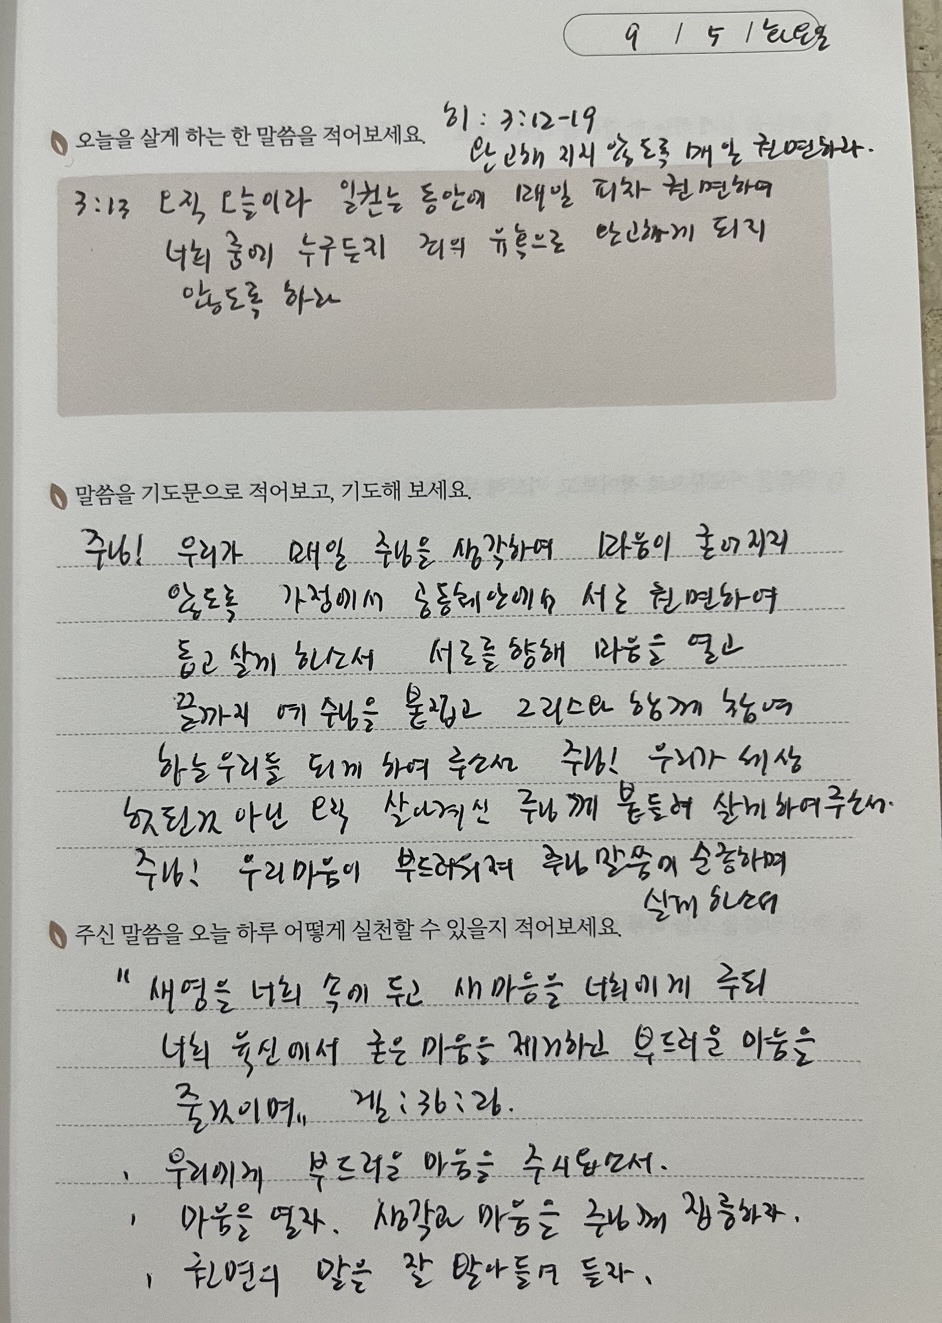 9 / 5 / 화요일
히 : 3:12-19
오늘을 살게 하는 한 말씀을 적어보세요.
완고해 지지 않도록 매일 권면하라.
3:13 오직 오늘이라 일컫는 동안에 매일 피차 권면하여
너희 중에 누구든지 죄의 유혹으로 완고하게 되지
않도록 하라
말씀을 기도문으로 적어보고, 기도해 보세요.
주님! 우리가 매일 주님을 생각하여 마음이 굳어지지
않도록 가정에서 공동체안에서 서로 권면하여
돕고 살게 하소서 서로를 향해 마음을 열고
끝까지 예수님을 붙잡고 그리스도와 함께 참여
하는 우리들 되게 하여 주소서 주님! 우리가 세상
헛된것 아닌 오직 살아계신 주님께 붙들려 살게하여주소서.
주님! 우리마음이 부드러워져 주님 말씀에 순종하며
살게 하소서
주신 말씀을 오늘 하루 어떻게 실천할 수 있을지 적어보세요.
" 새영을 너희 속에 두고 새마음을 너희에게 주되
너희 육신에서 굳은 마음을 제거하고 부드러운 마음을
줄것이며" 겔 : 36 : 26.
, 우리에게 부드러운 마음을 주시옵소서.
, 마음을 열자. 생각과 마음을 주님께 집중하자.
, 권면의 말을 잘 받아들여 듣자.